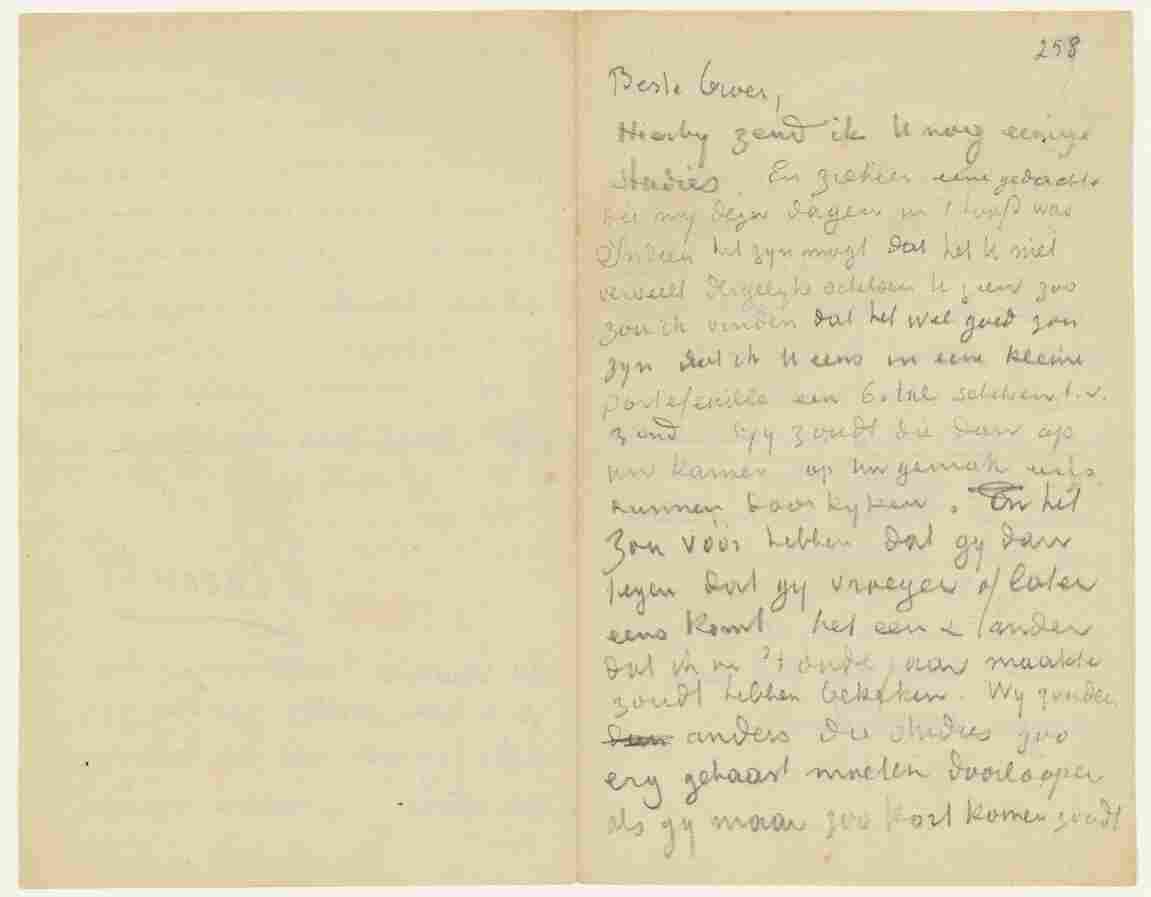 258
Beste Broer,
Hierby zend ik U nog eenige
studies. En ziehier eene gedachte
die my dezer dagen in 't hoofd was
Indien het zyn mogt dat het U niet
verveelt dergelyke schetsen te zien zoo
zou ik vinden dat het wel goed zou
zyn dat ik U eens in eene kleine
portefeuille een 6 tal schetsen t.v.
zond Gy zoudt die dan op
uw kamer op uw gemak eens
kunnen doorkyken. En het
zou vóór hebben dat gy dan
tegen dat gy vroeger of later
eens komt het een & ander
dat ik in 't oude jaar maakte
zoudt hebben bekeken. Wy zouden
dan anders die studies zoo
erg gehaast moeten doorloopen
als gy maar zoo kort komen zoudt